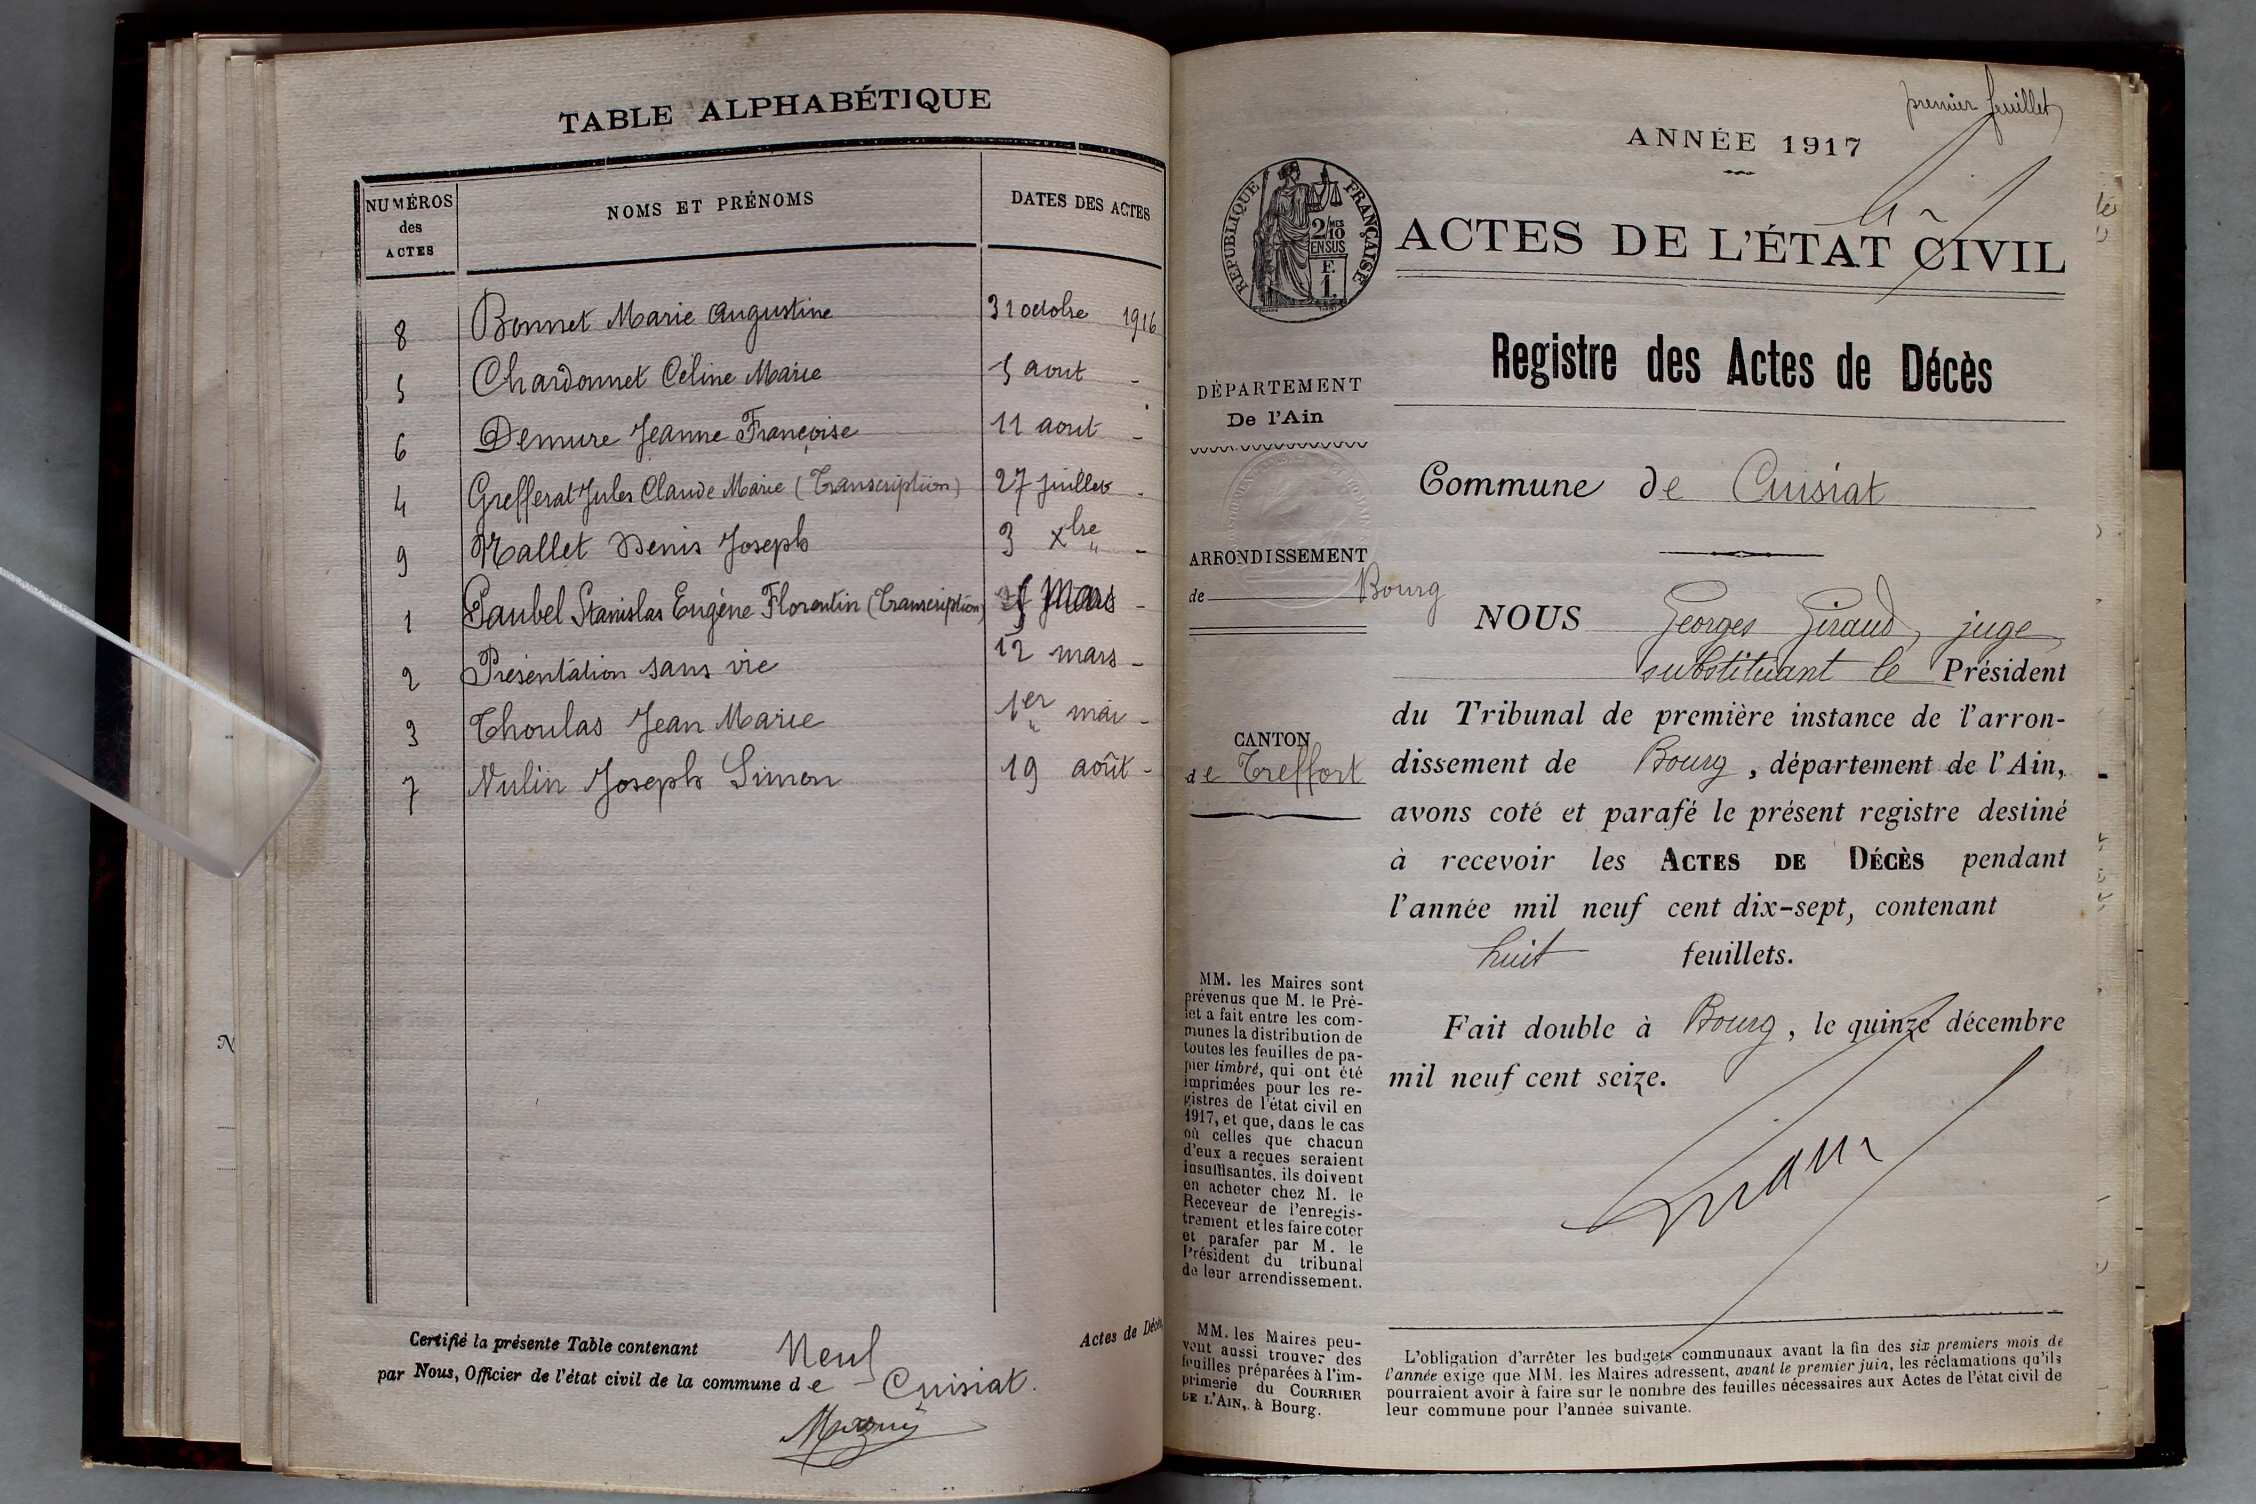 TABLE ALPHABÉTIQUE
NUMÉROS
des
ACTES
NOMS ET PRÉNOMS
DATES DES ACTES
8 Bonnet Marie Augustine 31 octobre 1916
5 Chardonnet Céline Marie 5 aout -
6 Demure Jeanne Françoise 11 aout -
4 Grefferat Jules Claude Marie (Transcription) 27 juillet -
9 Mallet Denis Joseph 3 Xbre -
1 Paubel Stanislas Eugène Florentin (Transcription) Mars -
2 Présentation sans vie 12 mars -
3 Thoulas Jean Marie 1er mai -
7 Vulin Joseph Simon 19 août -
Certifié la présente Table contenant Neuf Actes de Décès,
par Nous, Officier de l'état civil de la commune de Cuisiat.
premier feuillet
ANNÉE 1917
RÉPUBLIQUE FRANÇAISE
2/10MES
EN SUS
F.
1.
ACTES DE L'ÉTAT CIVIL
Registre des Actes de Décès
DÉPARTEMENT
De l'Ain
Commune de Cuisiat
ARRONDISSEMENT
de Bourg
CANTON
de Treffort
NOUS Georges Giraud, juge
substituant le Président
du Tribunal de première instance de l'arron-
dissement de Bourg, département de l'Ain,
avons coté et parafé le présent registre destiné
à recevoir les ACTES DE DÉCÈS pendant
l'année mil neuf cent dix-sept, contenant
huit feuillets.
Fait double à Bourg, le quinze décembre
mil neuf cent seize.
MM. les Maires sont
prévenus que M. le Pré-
fet a fait entre les com-
munes la distribution de
toutes les feuilles de pa-
pier timbré, qui ont été
imprimées pour les re-
gistres de l'état civil en
1917, et que, dans le cas
où celles que chacun
d'eux a reçues seraient
insuffisantes, ils doivent
en acheter chez M. le
Receveur de l'enregis-
trement et les faire coter
et parafer par M. le
Président du tribunal
de leur arrondissement.
MM. les Maires peu-
vent aussi trouver des
feuilles préparées à l'im-
primerie du COURRIER
DE L'AIN, à Bourg.
L'obligation d'arrêter les budgets communaux avant la fin des six premiers mois de
l'année exige que MM. les Maires adressent, avant le premier juin, les réclamations qu'ils
pourraient avoir à faire sur le nombre des feuilles nécessaires aux Actes de l'état civil de
leur commune pour l'année suivante.